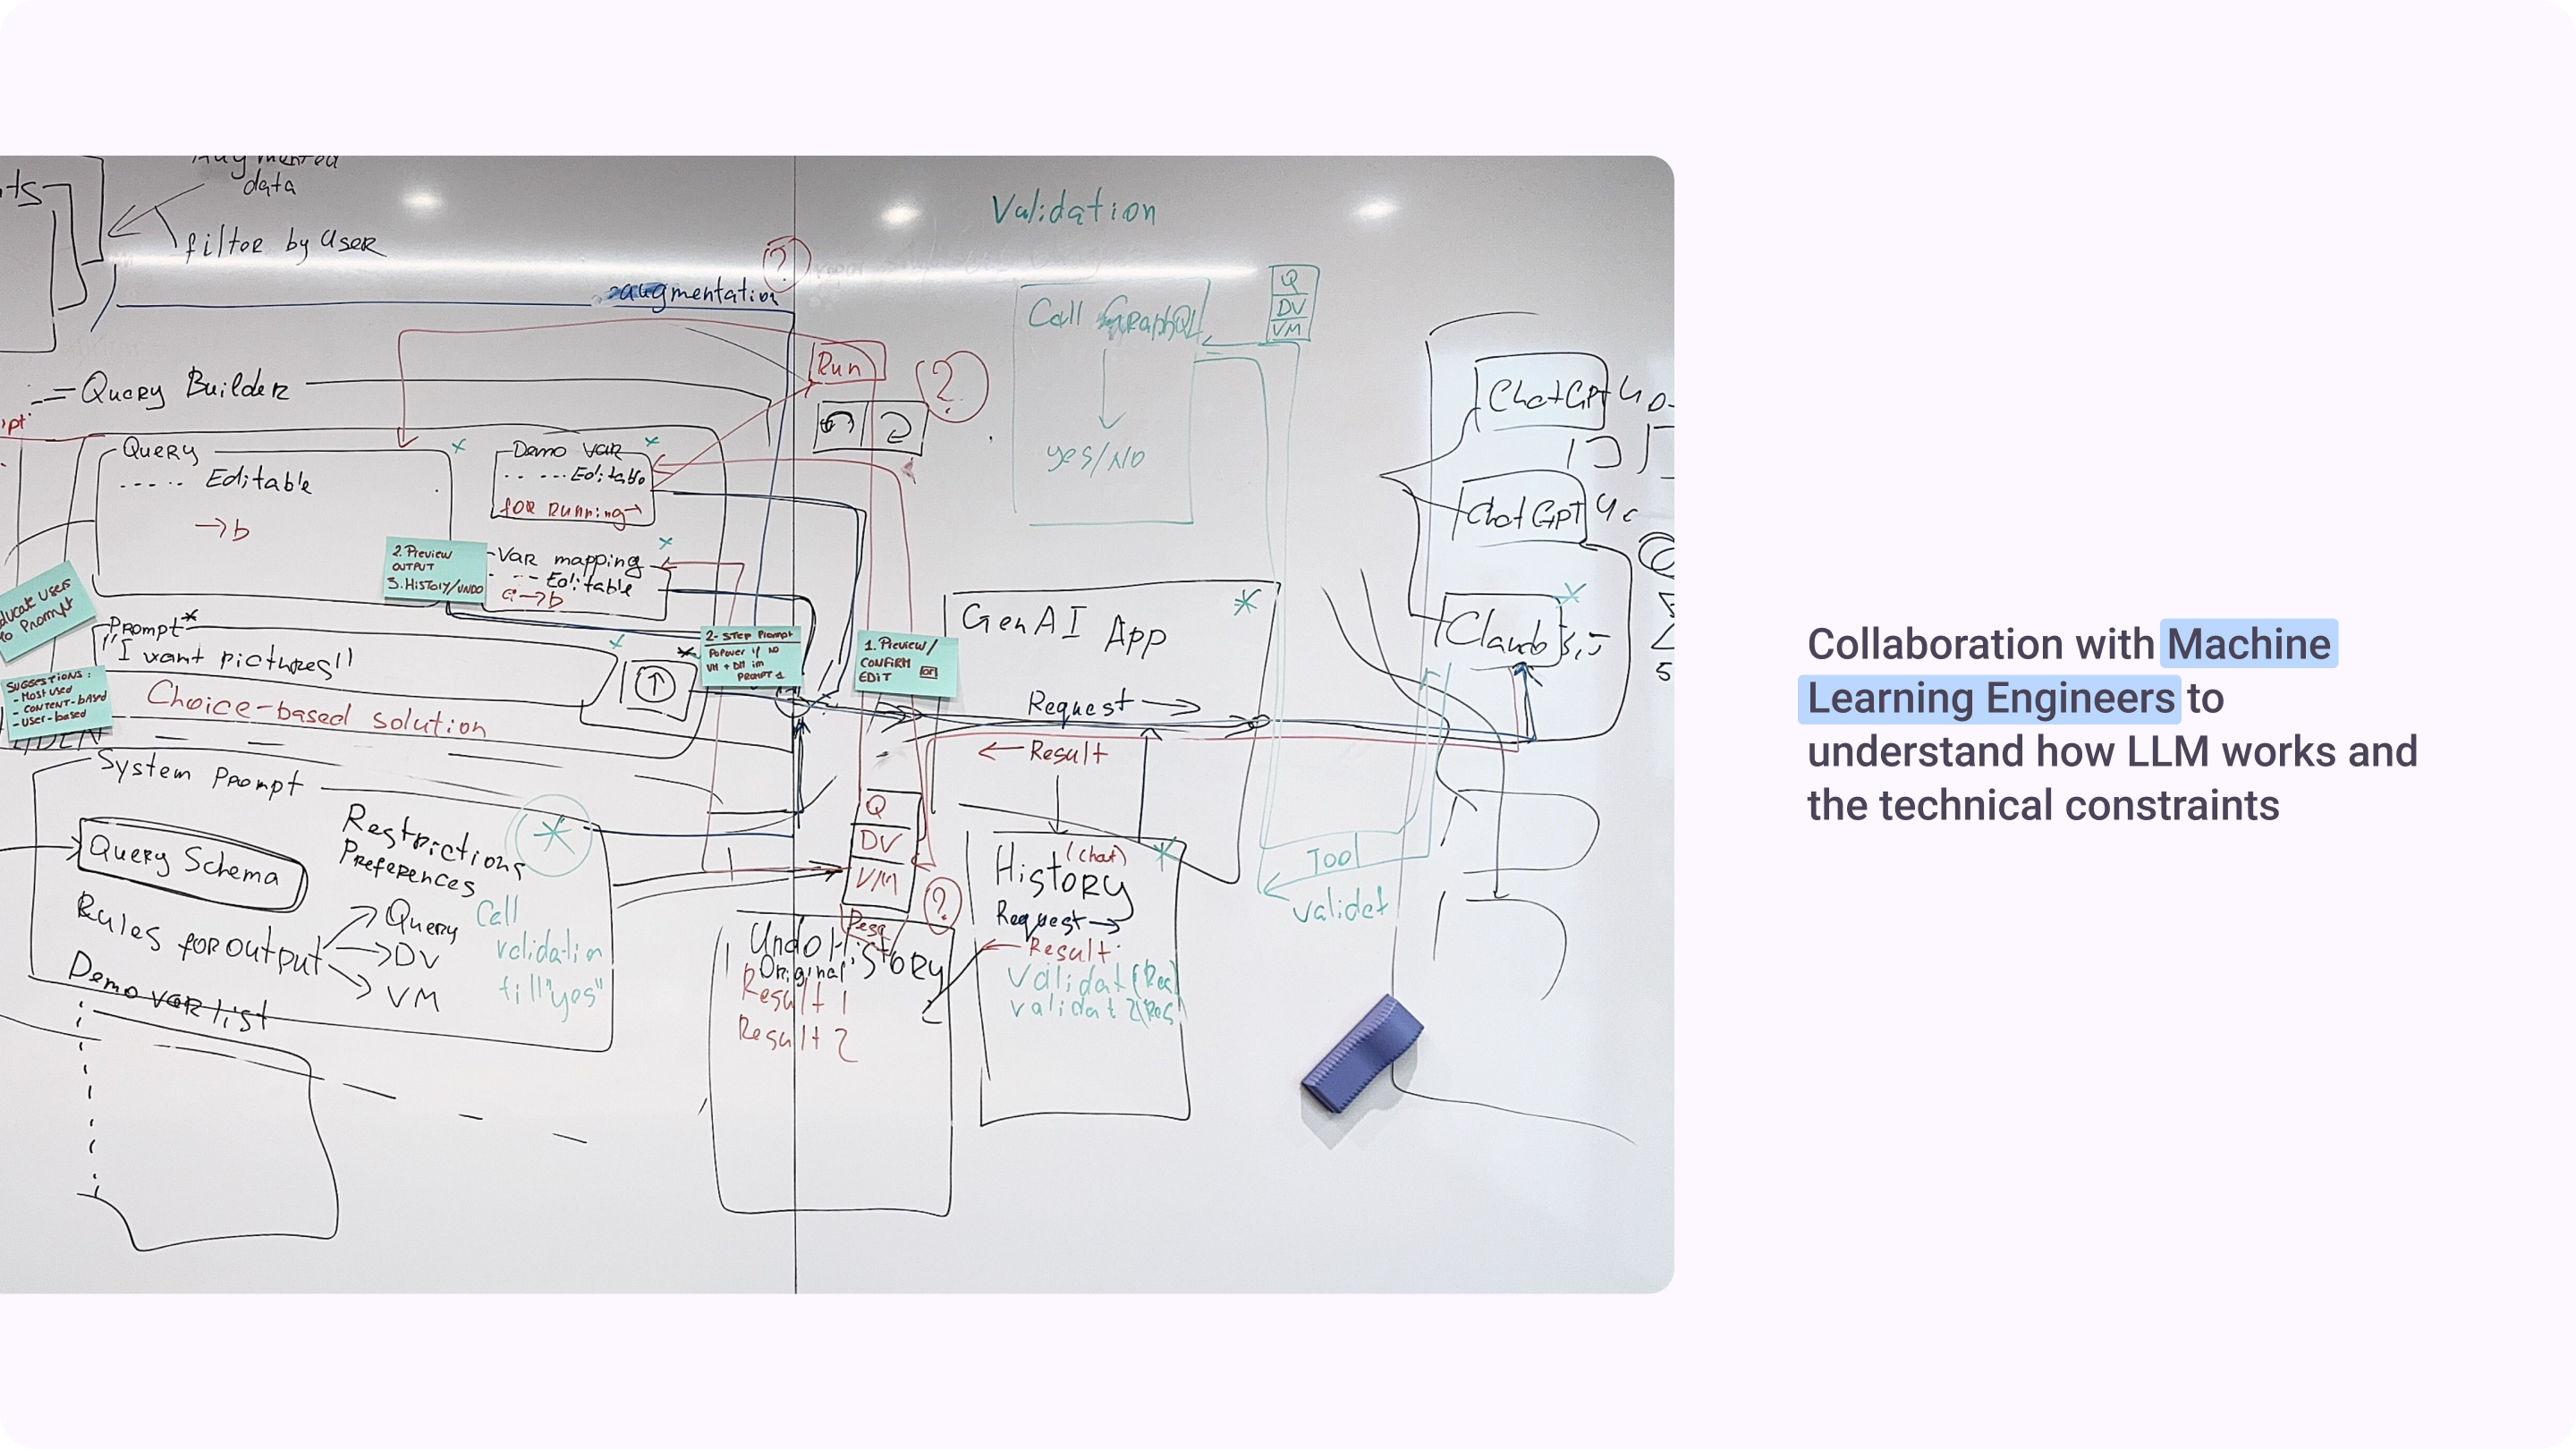 data
filter by User
augmentation
?
Validation
Call GraphQL
yes/No
Q
DV
VM
Query Builder
Run
?
Query
..... Editable
→ b
Demo var
Editable
for Running
Var mapping
Editable
a → b
2. Preview
OUTPUT
3. HISTORY/UNDO
Prompt*
"I want pictures"
to Prompt
SUGGESTIONS:
- Most used
- CONTENT-bASED
- User-based
Choice-based solution
2-STEP Prompt
Popover if NO
VM + DM im
PROMPT 1
1. Preview/
CONFIRM
EDIT
GenAI App
Request →
← Result
ChatGPT 4o
ChatGPT 4o
System Prompt
Query Schema
Restrictions
Preferences
Rules for output
Query
DV
VM
Demo var list
Call
validation
till "yes"
Q
DV
VM
?
Undo History
Original
Result 1
Result 2
(chat)
History
Request →
← Result
Validat (Res
validat 2(Res
Tool
validat
Collaboration with Machine
Learning Engineers to
understand how LLM works and
the technical constraints